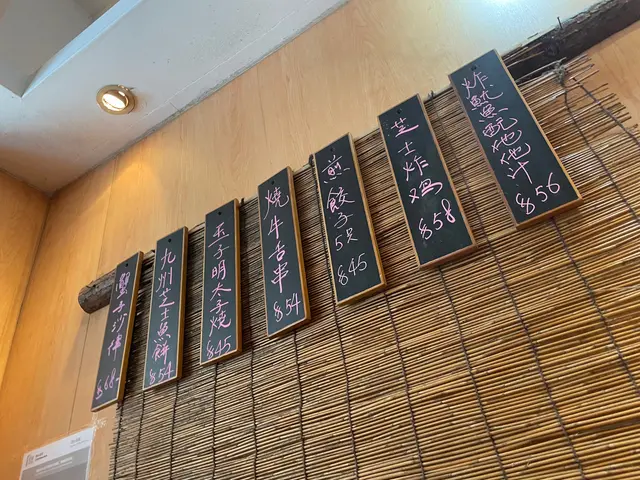 蟹子沙律 $68
九州芝士魚餅 $54
玉子明太子燒 $45
燒牛舌串 $54
煎餃子5只 $45
芝士炸鸡 $58
炸魷魚配他他汁 $56